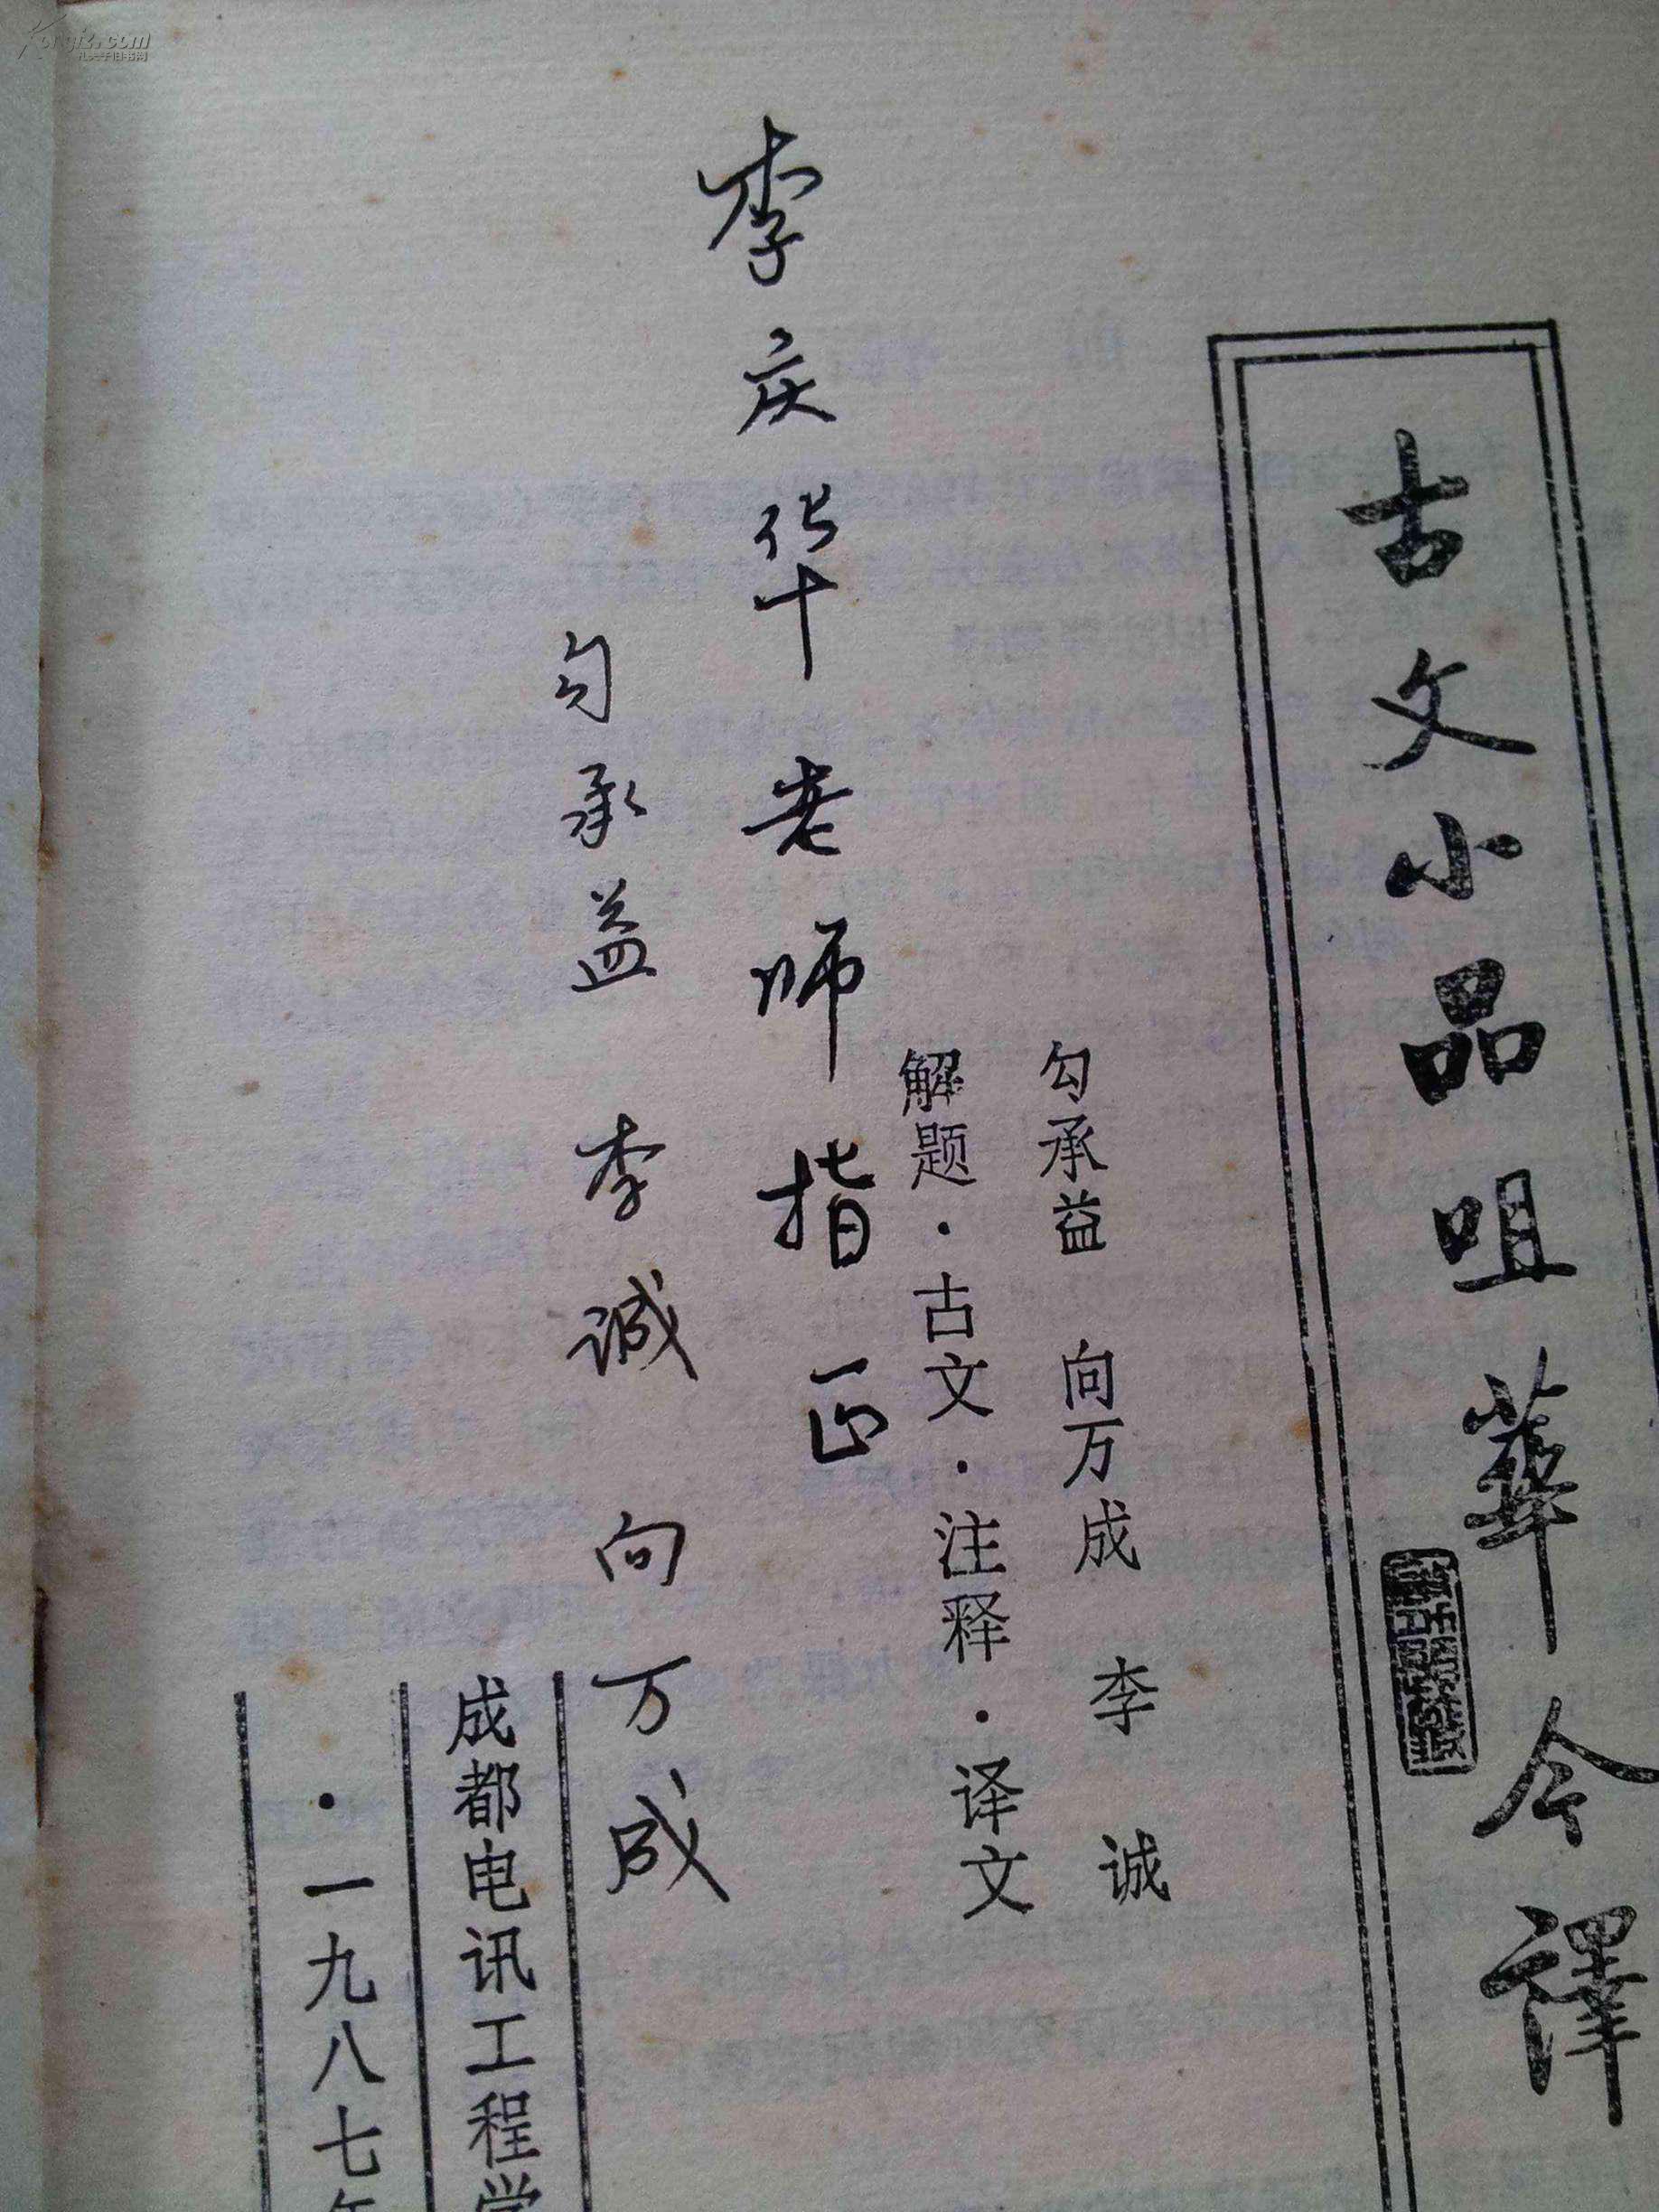 古文小品咀華今譯
勾承益 向万成 李诚
解题·古文·注释·译文
李庆华老师指正
勾承益 李诚 向万成
成都电讯工程学
·一九八七年
Kongfz.com
孔夫子旧书网